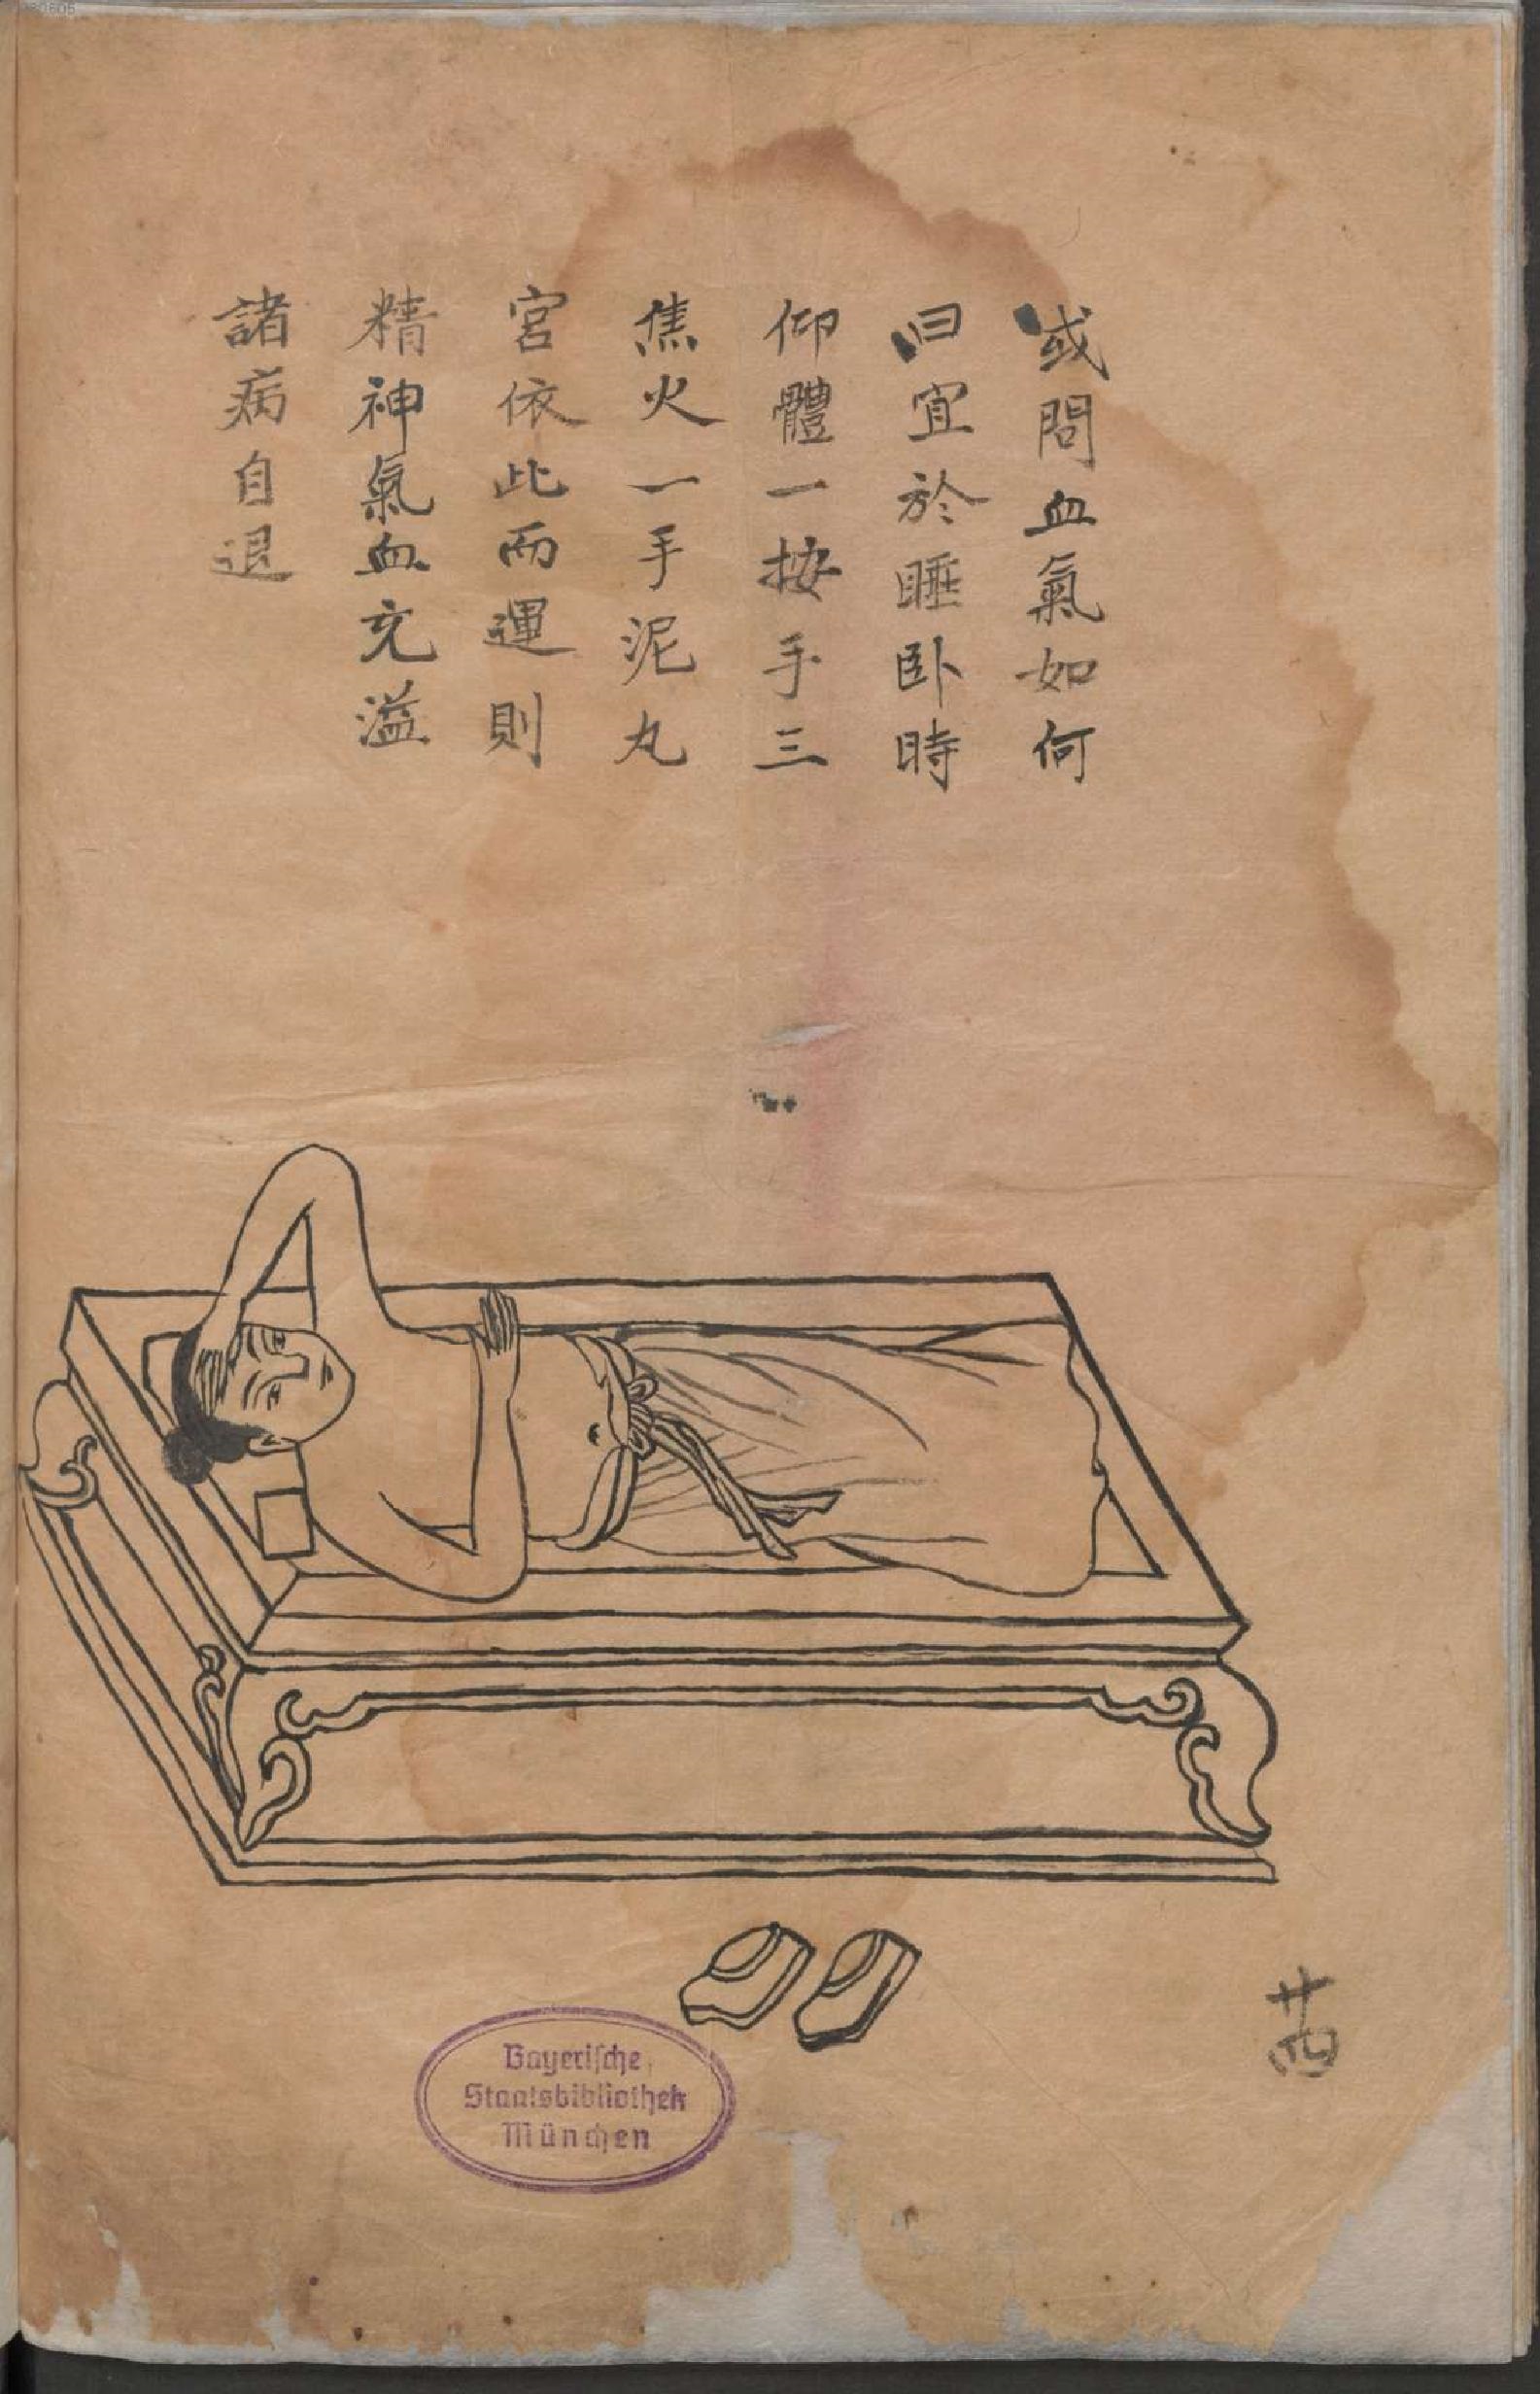 或問血氣如何
曰宜於睡卧時
仰體一按手三
焦火一手泥丸
宮依此而運則
精神氣血充溢
諸病自退
Bayerische
Staatsbibliothek
München